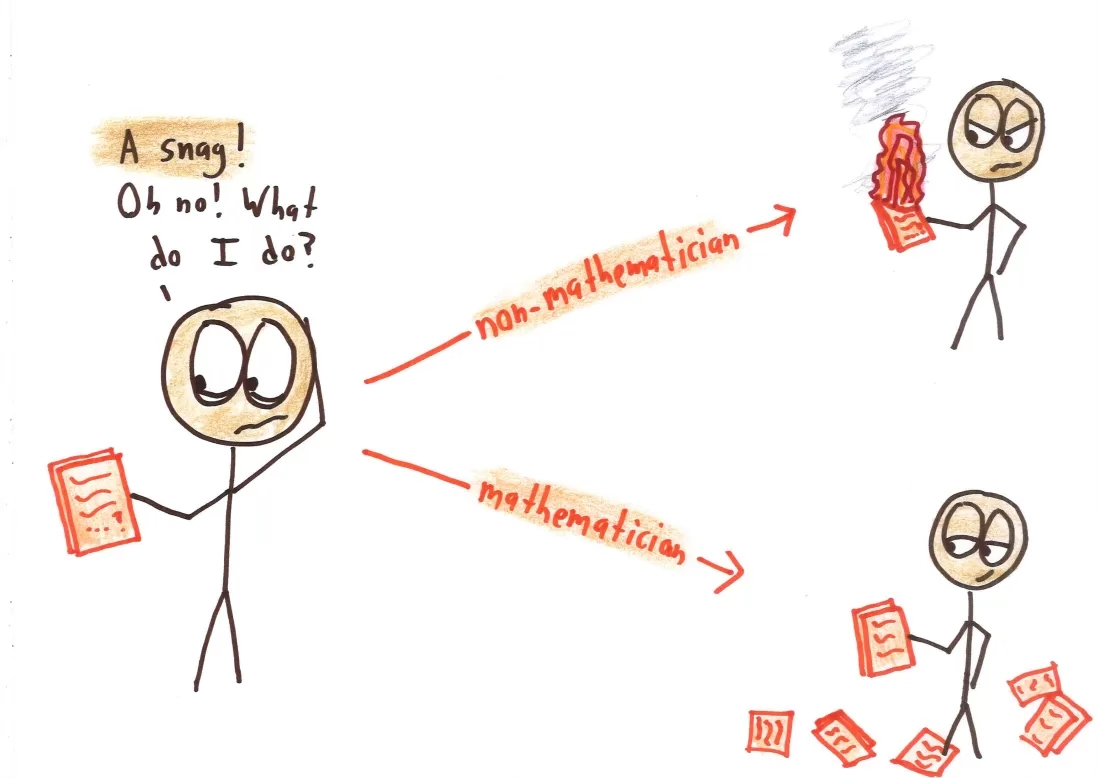 A snag!
Oh no! What
do I do?
non-mathematician
mathematician